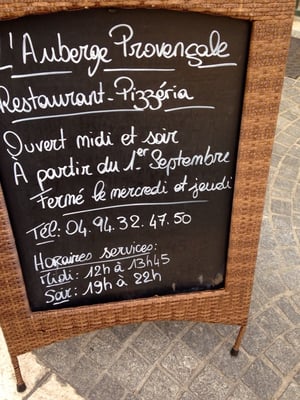 L'Auberge Provençale
Restaurant-Pizzéria
Ouvert midi et soir
À partir du 1er Septembre
Fermé le mercredi et jeudi
Tél: 04.94.32.47.50
Horaires services:
Midi: 12h à 13h45
Soir: 19h à 22h